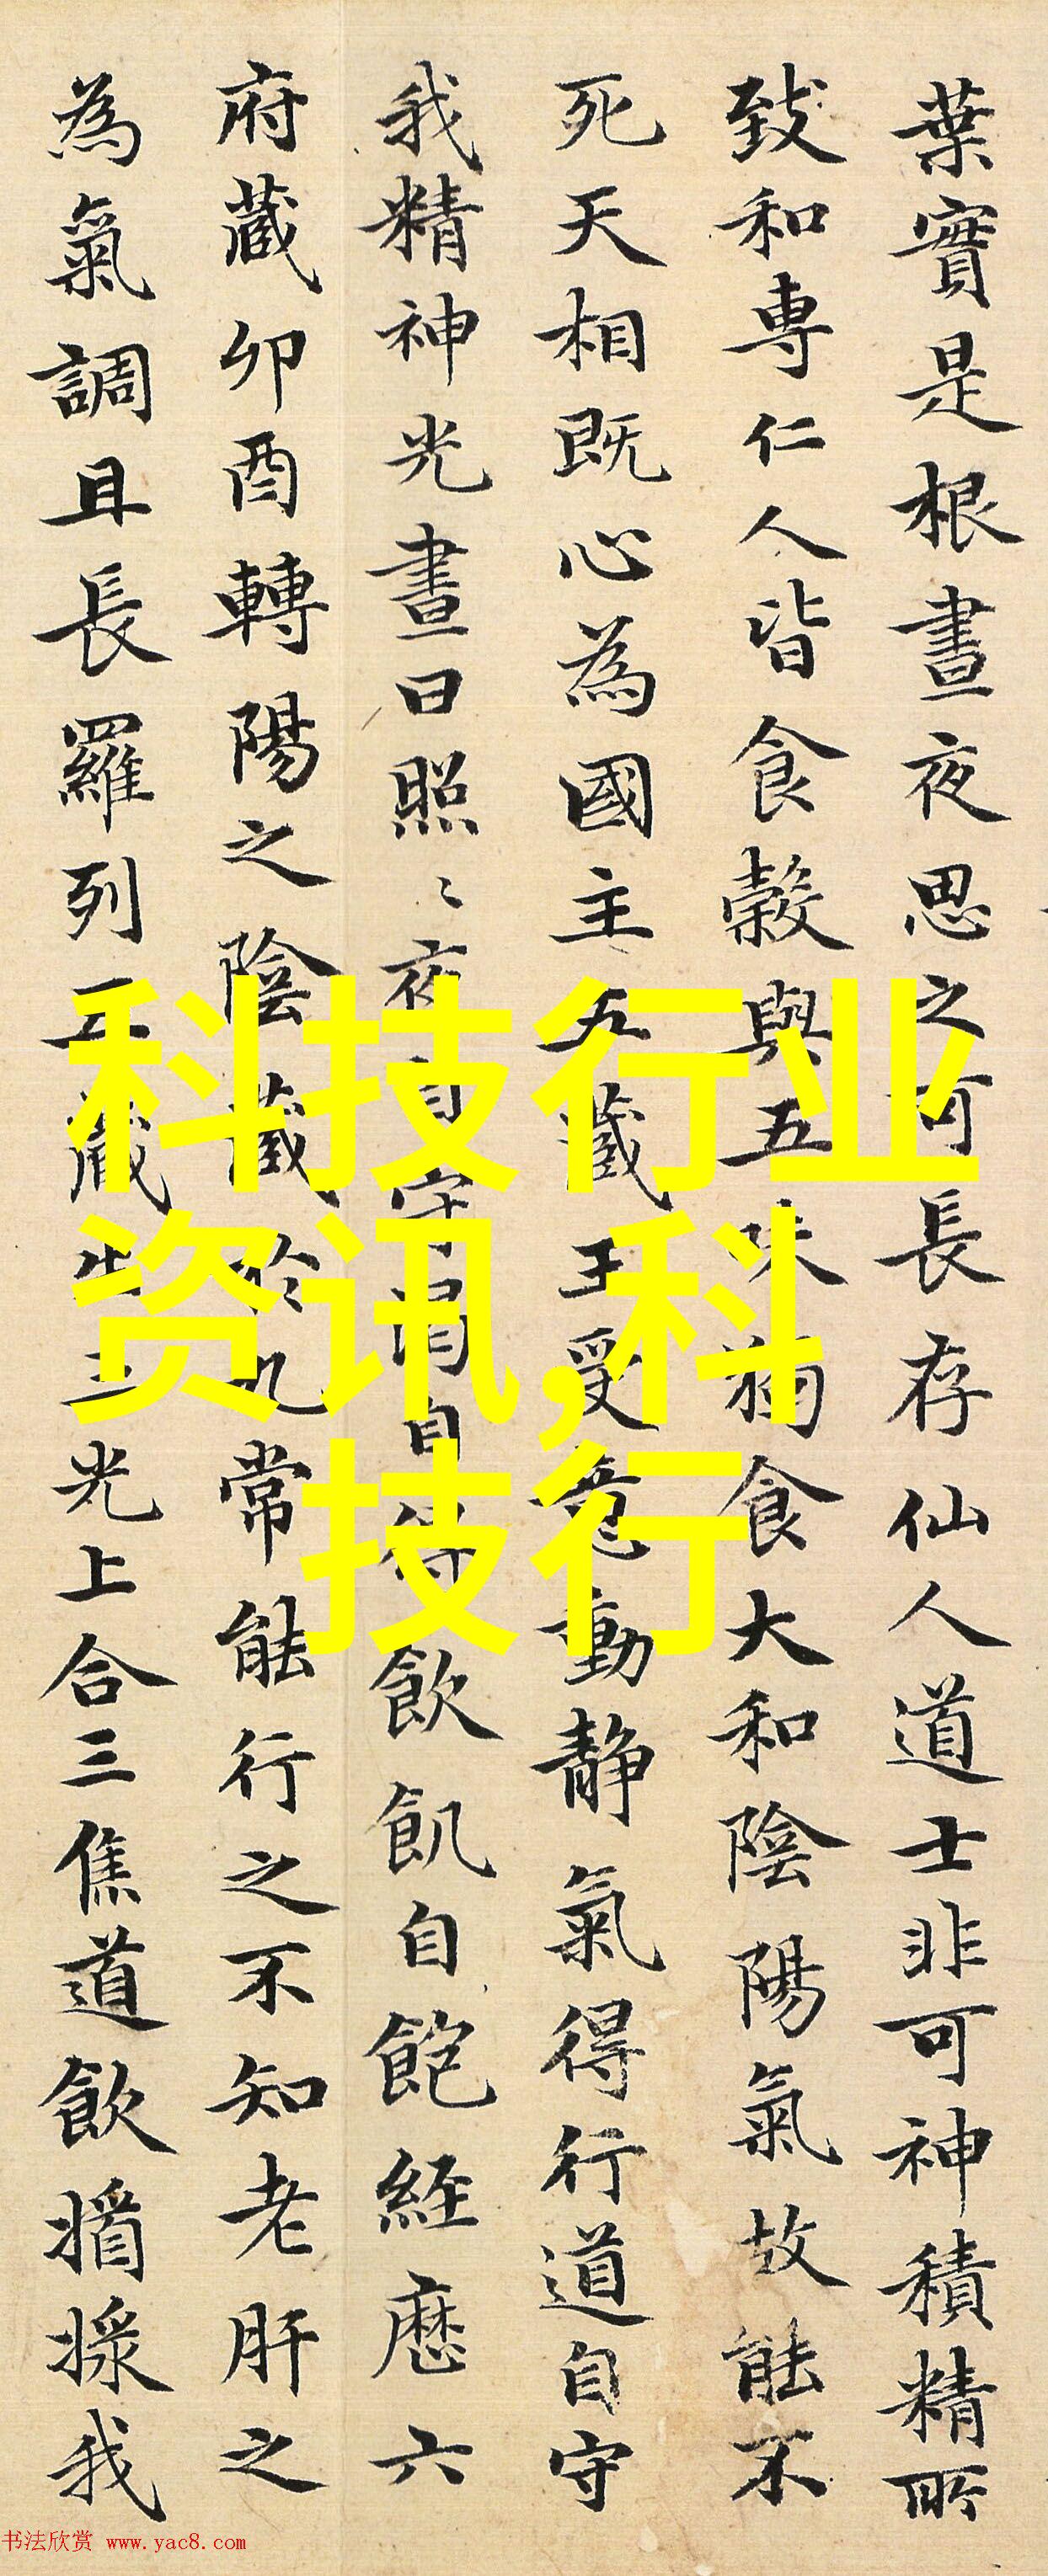 葉實是根晝夜思之可長存仙人道士非可神積精所
致和專仁人皆食穀與五味獨食大和陰陽氣故能不
死天相既心為國主五藏王受意動静氣得行道自守
我精神光晝日照〻夜自守渴自得飲飢自飽経歷六
府藏卯酉轉陽之陰藏於九常能行之不知老肝之
為氣調且長羅列五藏生三光上合三焦道飲揗揼我
科技行业
资讯,科
技行
书法欣赏 www.yac8.com